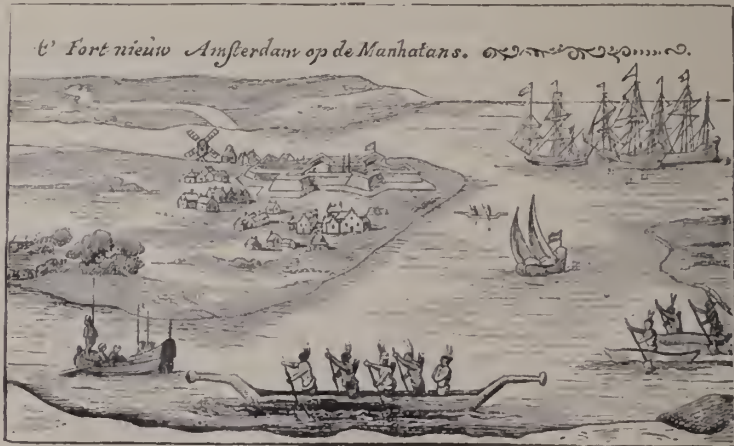 t' Fort nieùw Amſterdam op de Manhatans.